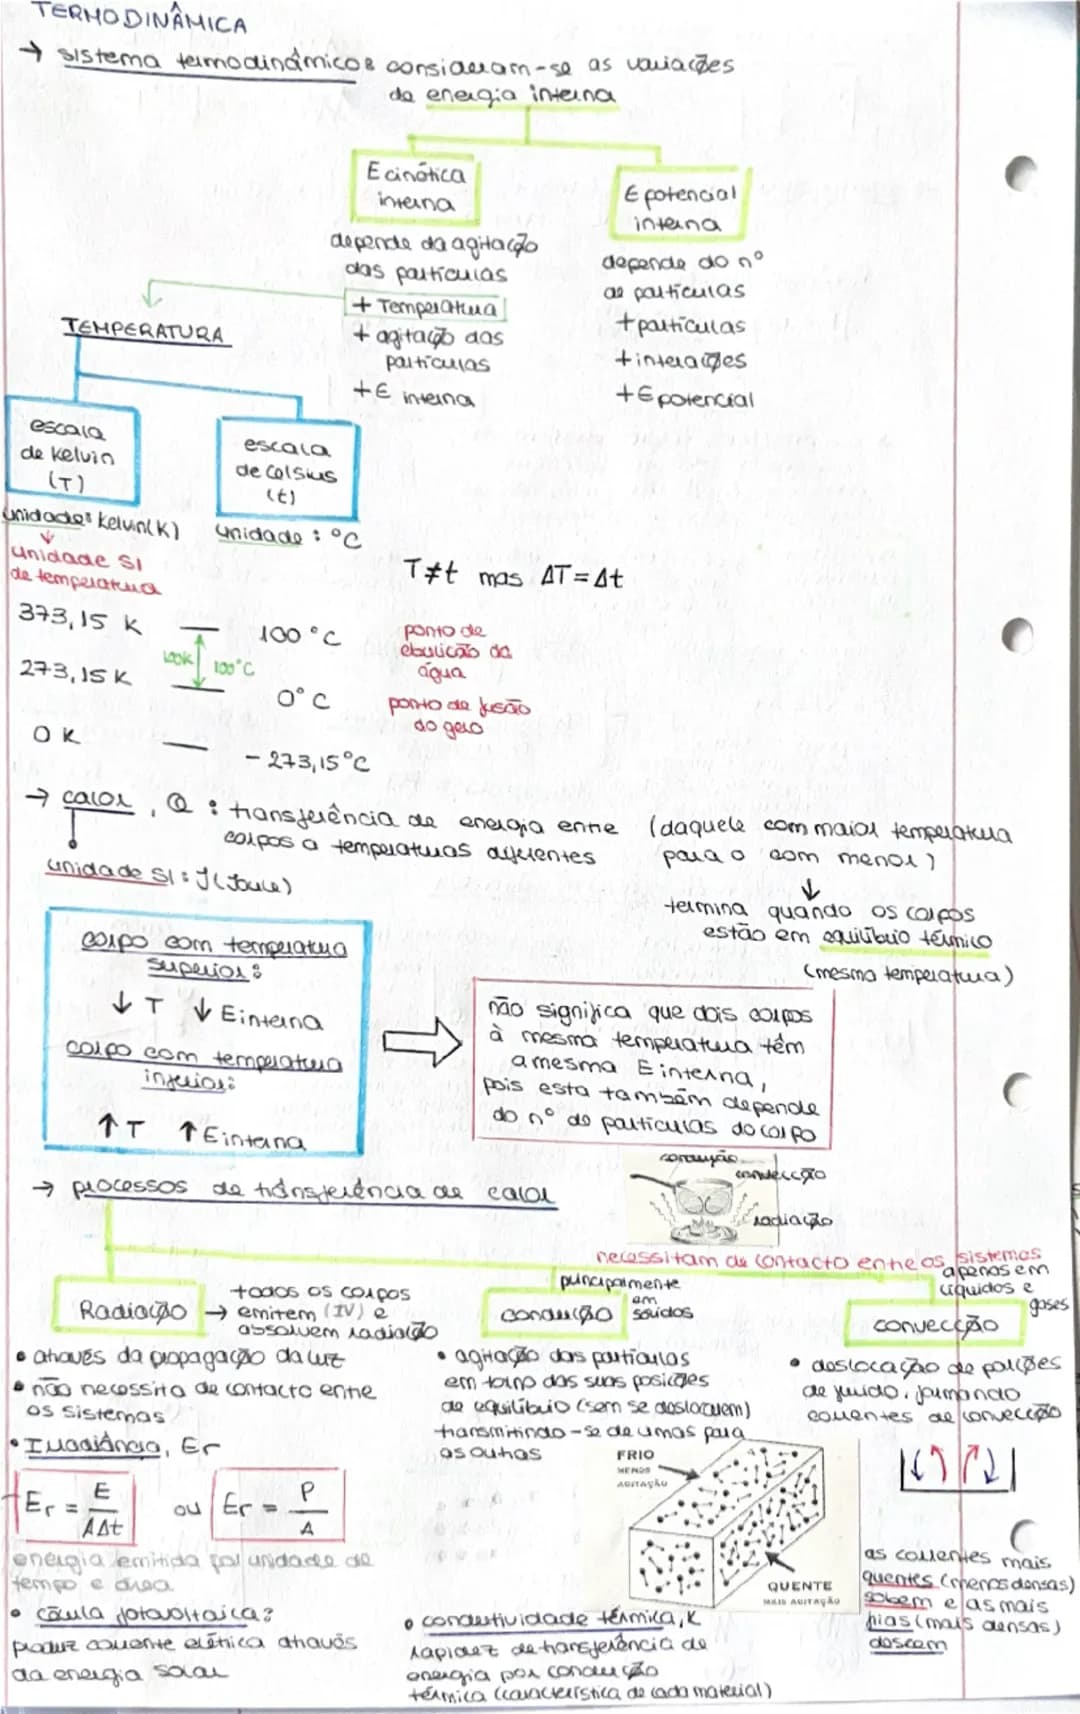 TERMODINÂMICA
→ sistema termodinâmico: consideram-se as variações
da energia interna
E cinética
interna
depende da agitação
das partículas
+ Temperatura
+ agitação das
partículas
+E interna
E potencial
interna
depende do nº
de partículas
+ partículas
+ interações
+ E potencial
TEMPERATURA
escala
de kelvin
(T)
unidade: kelvin(K)
unidade SI
de temperatura
escala
de Celsius
(t)
unidade: °C
T≠t mas ΔT=Δt
373,15 K
100 °C
ponto de
ebulição da
água
100K
100°C
273,15 K
0°C
ponto de fusão
do gelo
0 K
- 273,15°C
→ calor, Q : transferência de energia entre
corpos a temperaturas diferentes
(daquele com maior temperatura
para o com menor)
↓
termina quando os corpos
estão em equilíbrio térmico
(mesma temperatura)
unidade SI: J (Joule)
corpo com temperatura
superior:
↓ T ↓ E interna
corpo com temperatura
inferior:
↑ T ↑ E interna
não significa que dois corpos
à mesma temperatura têm
a mesma E interna,
pois esta também depende
do nº de partículas do corpo
→ processos de transferência de calor
condução
convecção
radiação
necessitam de contacto entre os sistemas
Radiação
→ todos os corpos
emitem (IV) e
absolvem radiação
• através da propagação da luz
• não necessita de contacto entre
os sistemas
• Irradiância, Er
Er = E / AΔt
ou
Er = P / A
energia emitida por unidade de
tempo e área
• célula fotovoltaica:
produz corrente elétrica através
da energia solar
condução
principalmente
em
sólidos
• agitação das partículas
em torno das suas posições
de equilíbrio (sem se deslocarem)
transmitindo-se de umas para
as outras
FRIO
MENOS
AGITAÇÃO
QUENTE
MAIS AGITAÇÃO
• condutividade térmica, K
rapidez de transferência de
energia por condução
térmica (característica de cada material)
convecção
apenas em
líquidos e
gases
• deslocação de porções
de fluido, formando
correntes de convecção
as correntes mais
quentes (menos densas)
sobem e as mais
frias (mais densas)
descem